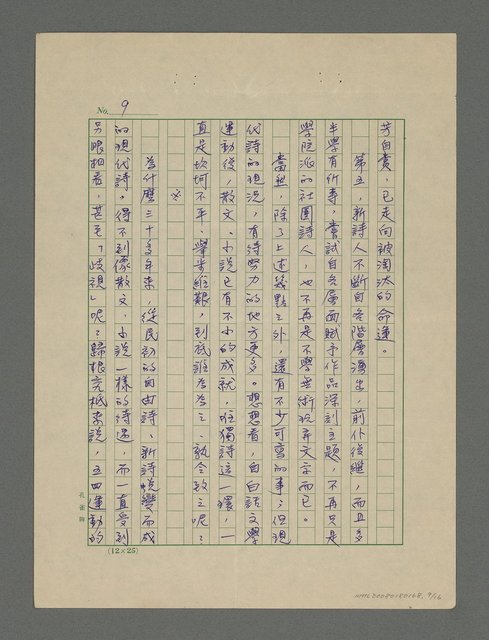 No. 9
芳自賞,已走向被淘汰的命運。
第五,新詩人不斷自各階層湧出,前仆後繼,而且多
半學有所專,嘗試自各層面賦予作品深刻主題,不再只是
學院派的社團詩人,也不再是不學無術玩弄文字而已。
當然,除了上述幾點之外,還有不少可喜的事;但現
代詩的現況,有待努力的地方更多。想想看,自白話文學
運動後,散文、小說已有不小的成就,唯獨詩這一環,一
直是坎坷不平、舉步維艱,到底誰為為之、孰令致之呢?
※
為什麼三十多年來,從民初的自由詩、新詩蛻變而成
的現代詩,得不到像散文、小說一樣的待遇,而一直受到
另眼相看,甚至「歧視」呢?歸根究柢來說,五四運動的
孔雀牌
(12×25)
NMTL20080180168, 9/16